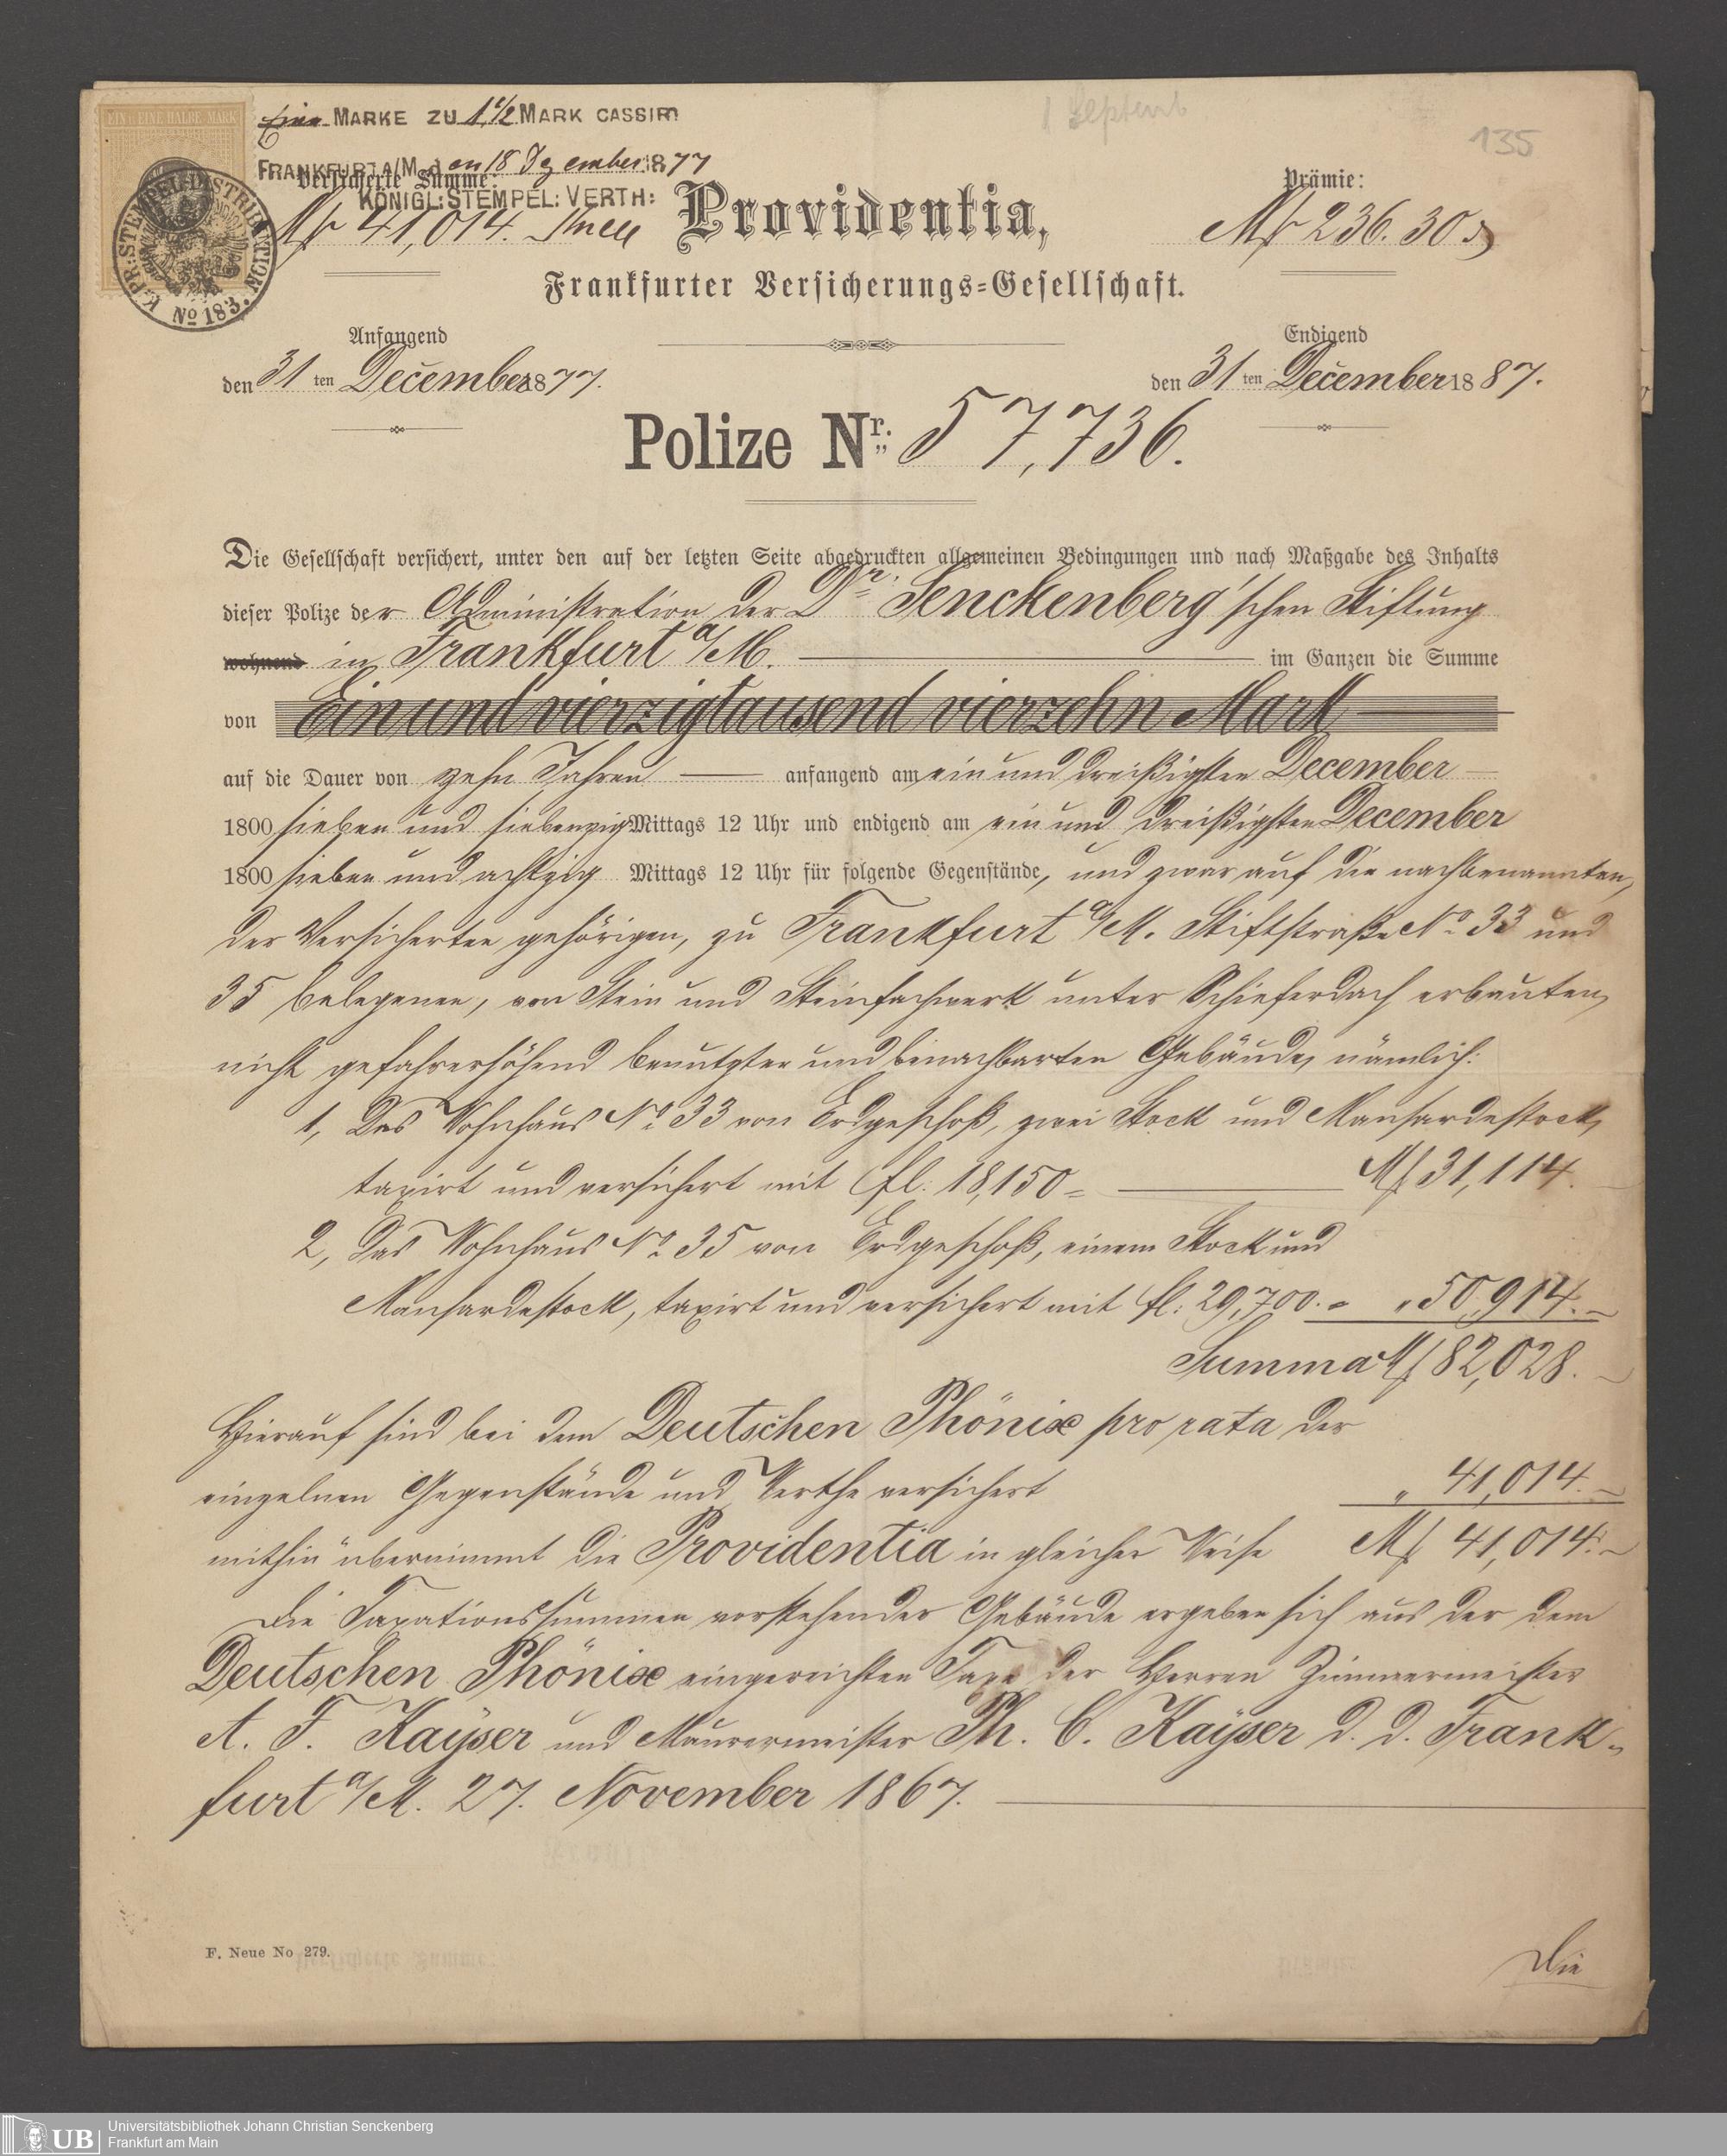 1 Septemb
135
EIN U. EINE HALBE MARK
Eine MARKE ZU 1 1/2 MARK CASSIRT
FRANKFURT A/M. den 18 Dezember 1877
KÖNIGL: STEMPEL: VERTH:
K. PR: STEMPEL-DISTRIBUTION. No 183.
Versicherte Summe:
Mk 41,014.
Providentia,
Prämie:
Mk 236. 30
Frankfurter Versicherungs=Gesellschaft.
Anfangend
den 31 ten December 1877.
Endigend
den 31 ten December 1887.
Polize Nr. 57,736.
Die Gesellschaft versichert, unter den auf der letzten Seite abgedruckten allgemeinen Bedingungen und nach Maßgabe des Inhalts
dieser Polize der Administration der Dr. Senckenberg'schen Stiftung
wohnend in Frankfurt a/M. im Ganzen die Summe
von Ein und vierzigtausend vierzehn Mark
auf die Dauer von zehn Jahren anfangend am ein und dreißigsten December
1800 sieben und siebenzig Mittags 12 Uhr und endigend am ein und dreißigsten December
1800 sieben und achtzig Mittags 12 Uhr für folgende Gegenstände, und zwar auf die nachbenannten,
der Versicherten gehörigen, zu Frankfurt a/M. Stiftstraße No. 33 und
35 belegenen, von Stein und Steinfachwerk unter Schieferdach erbauten,
nicht gefahrerhöhend benutzten und benachbarten Gebäude, nämlich:
1, Das Wohnhaus No. 33 von Erdgeschoß, zwei Stock und Mansardestock,
taxirt und versichert mit fl. 18,150 = Mk 31,114.
2, Das Wohnhaus No. 35 von Erdgeschoß, einem Stock und
Mansardestock, taxirt und versichert mit fl. 29,700. = " 50,914. –
Summa Mk 82,028. –
Hierauf sind bei dem Deutschen Phönix pro rata der
einzelnen Gegenstände und Werthe versichert " 41,014. –
mithin übernimmt die Providentia in gleicher Weise Mk 41,014. –
Die Taxationssummen vorstehender Gebäude ergeben sich aus der dem
Deutschen Phönix eingereichten Taxe der Herren Zimmermeister
A. F. Kayser und Maurermeister Ph. C. Kayser d. d. Frank-
furt a/M. 27. November 1867.
F. Neue No 279.
Die
UB Universitätsbibliothek Johann Christian Senckenberg
Frankfurt am Main